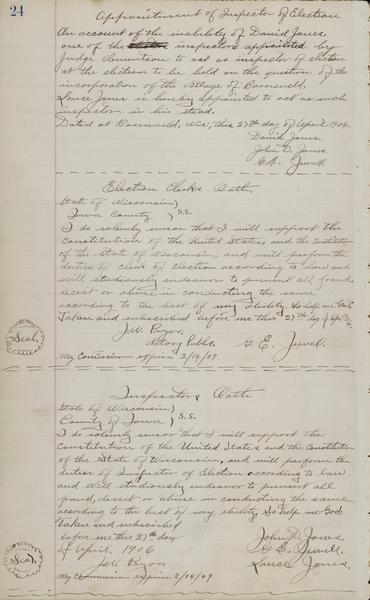 24
Appointment of Inspector of Election
On account of the inability of David Jones,
one of the inspectors appointed by
Judge Clementson to act as inspector of election
at the election to be held on the question of the
incorporation of the village of Barneveld,
Lance Jones is hereby appointed to act as such
inspector in his stead.
Dated at Barneveld, Wis., this 27th day of April 1906.
David Jones
John D. Jones.
G. E. Jewell.
Election Clerks Oath.
State of Wisconsin)
Iowa County ) S.S.
I do solemly swear that I will support the
Constitution of the United States, and the Constitution
of the State of Wisconsin, and will perform the
duties of clerk of Election according to law and
will studiously endeavor to prevent all fraud,
deceit or abuse in conducting the same
according to the best of my ability. So help me God.
Taken and subscribed before me this 27th day of
J. W. Pryor,
Notary Public. G. E. Jewell.
My Commission expires 2/14/09
Seal.
Inspectors Oath
State of Wisconsin)
County of Iowa ) S.S.
I do solemly swear that I will support the
Constitution of the United States and the Constitution
of the State of Wisconsin, and will perform the
duties of Inspector of Election according to law
and will studiously endeavor to prevent all
fraud, deceit or abuse in conducting the same
according to the best of my ability So help me God.
Taken and subscribed
before me this 27th day
of April, 1906
John D. Jones.
G. E. Jewell.
Lance Jones.
J. W. Pryor
My Commission expires 2/14/09
Seal.